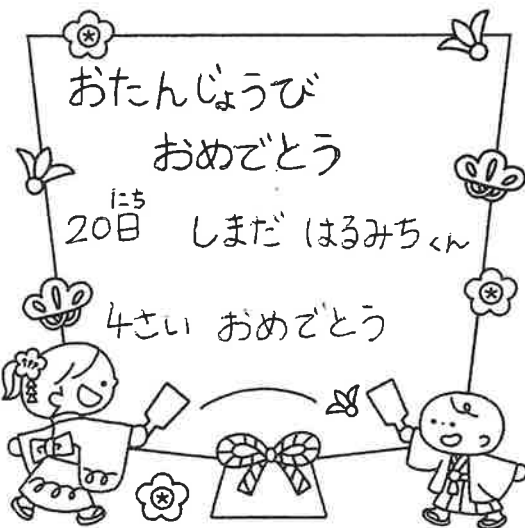 おたんじょうび
おめでとう
にち
20日 しまだ はるみちくん
4さい おめでとう